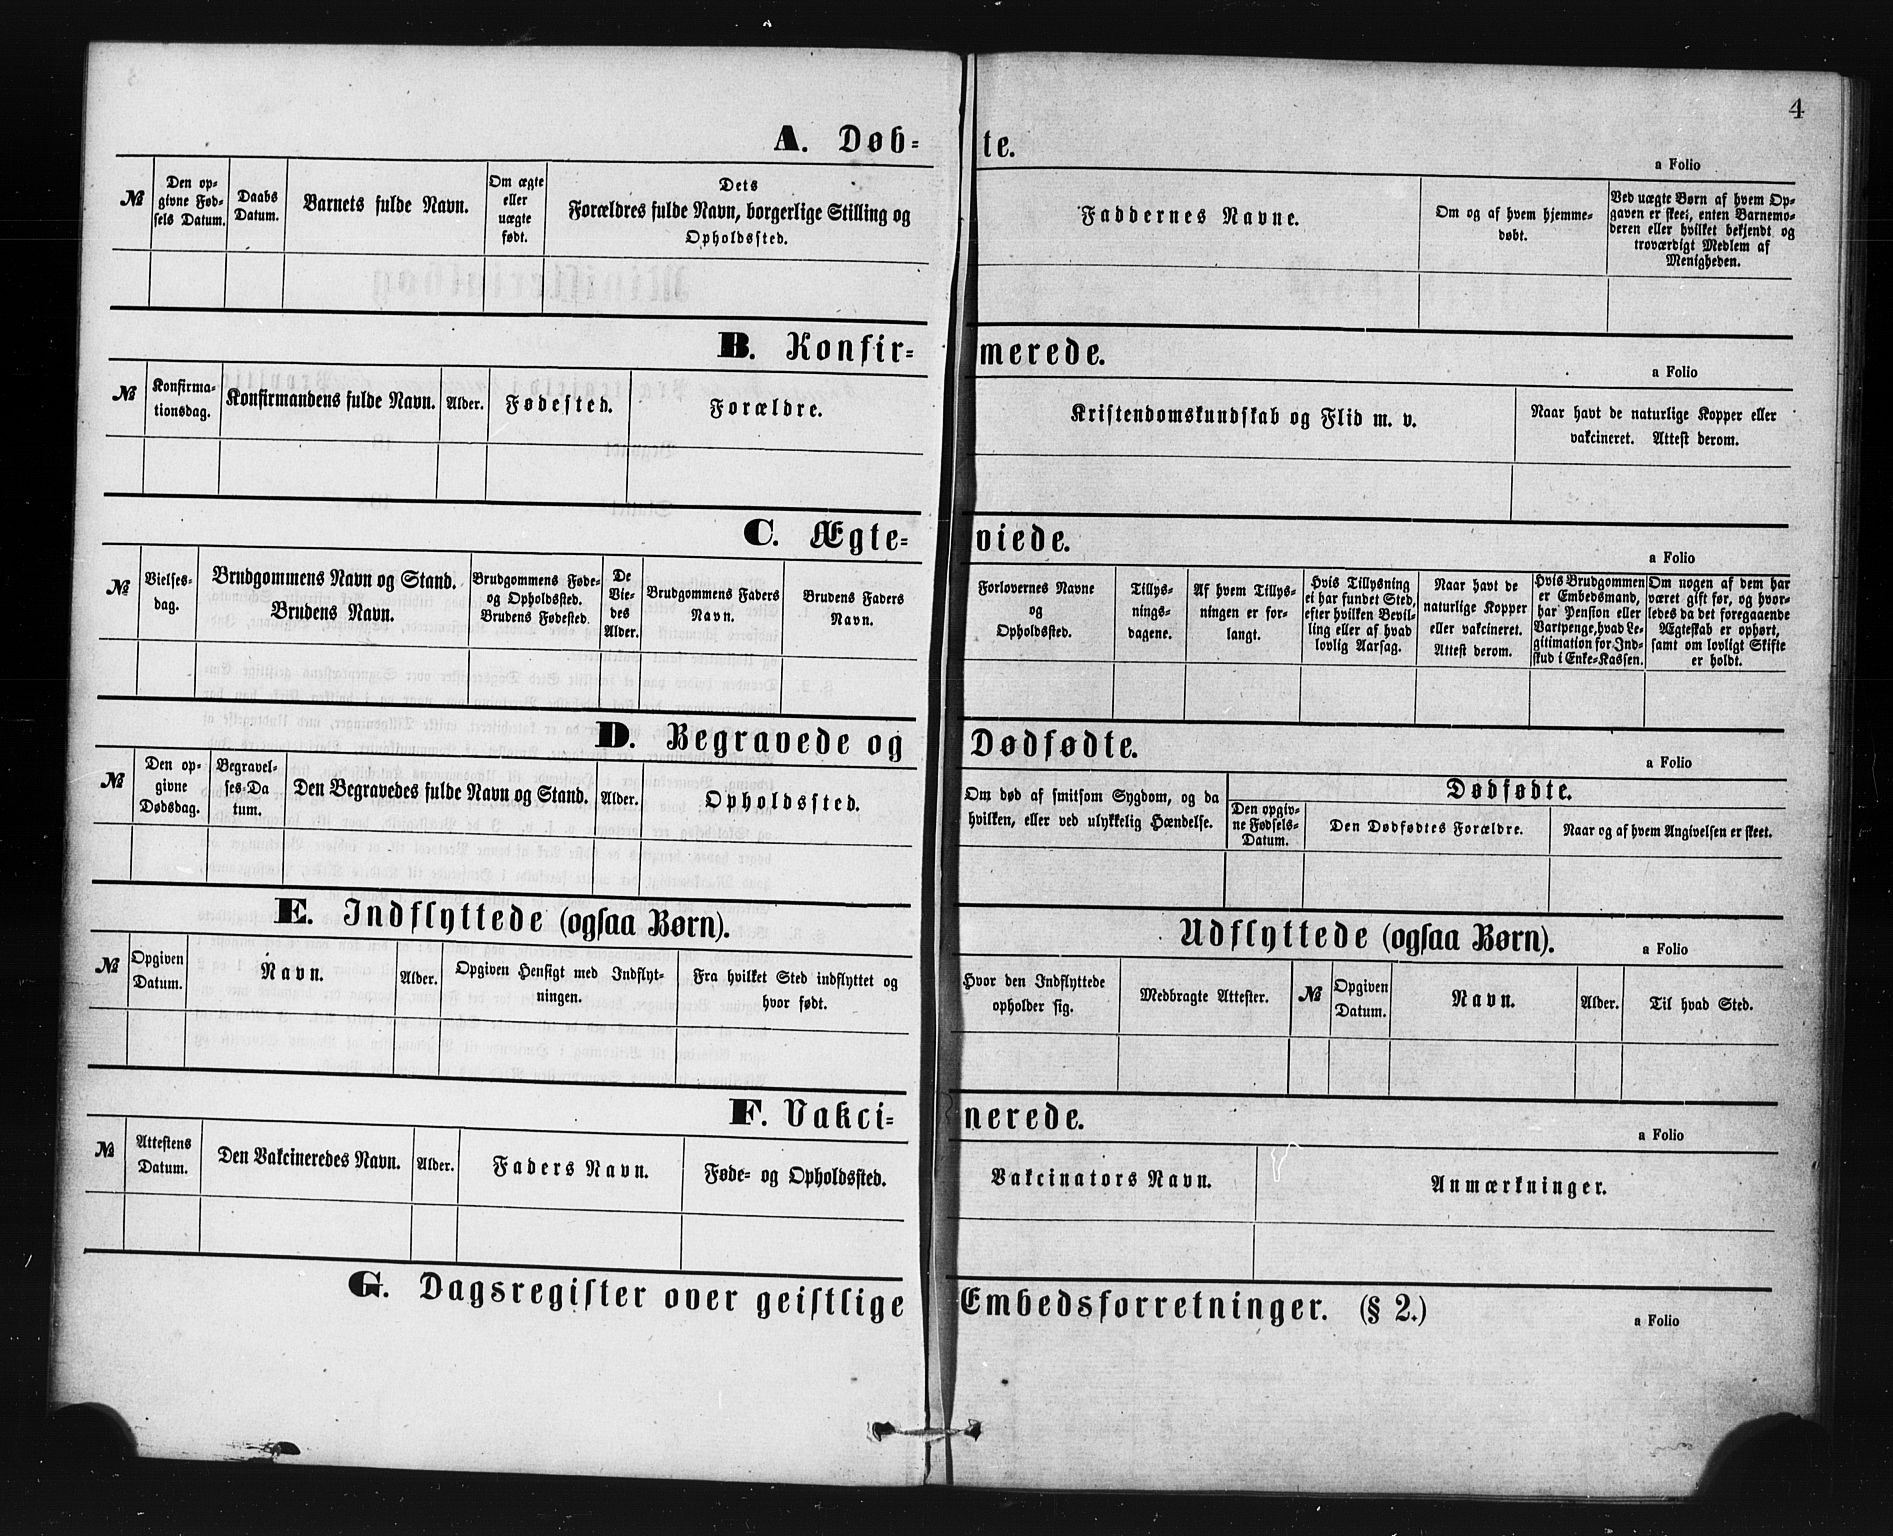 4
A. Døb-te.
a Folio
№
Den op-
givne Fød-
sels Datum.
Daabs
Datum.
Barnets fulde Navn.
Om ægte
eller
uægte
født.
Dets
Forældres fulde Navn, borgerlige Stilling og
Opholdssted.
Faddernes Navne.
Om og af hvem hjemme-
døbt.
Ved uægte Børn af hvem Op-
gaven er skeet, enten Barnemo-
deren eller hvilket bekjendt og
troværdigt Medlem af
Menigheden.
B. Konfir-merede.
a Folio
№
Konfirma-
tionsdag.
Konfirmandens fulde Navn.
Alder.
Fødested.
Forældre.
Kristendomskundskab og Flid m. v.
Naar havt de naturlige Kopper eller
vakcineret. Attest derom.
C. Ægte-viede.
a Folio
№
Vielses-
dag.
Brudgommens Navn og Stand.
Brudens Navn.
Brudgommens Føde-
og Opholdssted.
Brudens Fødested.
De
Vie-
des
Alder.
Brudgommens Faders
Navn.
Brudens Faders
Navn.
Forlovernes Navne
og
Opholdssted.
Tillys-
nings-
dagene.
Af hvem Tillys-
ningen er for-
langt.
Hvis Tillysning
ei har fundet Sted,
efter hvilken Bevil-
ling eller af hvad
lovlig Aarsag.
Naar havt de
naturlige Kopper
eller vakcineret.
Attest derom.
Hvis Brudgommen
er Embedsmand,
har Pension eller
Vartpenge, hvad Le-
gitimation for Ind-
skud i Enke-Kassen.
Om nogen af dem har
været gift før, og hvor-
ledes da det foregaaende
Ægteskab er ophørt,
samt om lovligt Skifte
er holdt.
D. Begravede og Dødfødte.
a Folio
№
Den op-
givne
Dødsdag.
Begravel-
ses-Da
tum.
Den Begravedes fulde Navn og Stand.
Alder.
Opholdssted.
Om død af smitsom Sygdom, og da
hvilken, eller ved ulykkelig Hændelse.
Dødfødte.
Den opgiv-
ne Fødsels-
Datum.
Den Dødfødtes Forældre.
Naar og af hvem Angivelsen er skeet.
E. Indflyttede (ogsaa Børn).
Udflyttede (ogsaa Børn).
a Folio
№
Opgiven
Datum.
Navn.
Alder.
Opgiven Hensigt med Indflyt-
ningen.
Fra hvilket Sted indflyttet og
hvor født.
Hvor den Indflyttede
opholder sig.
Medbragte Attester.
№
Opgiven
Datum.
Navn.
Alder.
Til hvad Sted.
F. Vakci-nerede.
a Folio
№
Attestens
Datum.
Den Vakcineredes Navn.
Alder.
Faders Navn.
Føde- og Opholdssted.
Vakcinators Navn.
Anmærkninger.
G. Dagsregister over geistlige Embedsforretninger. (§ 2.)
a Folio